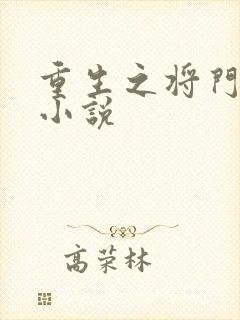 重生之将门
小说
高荣林